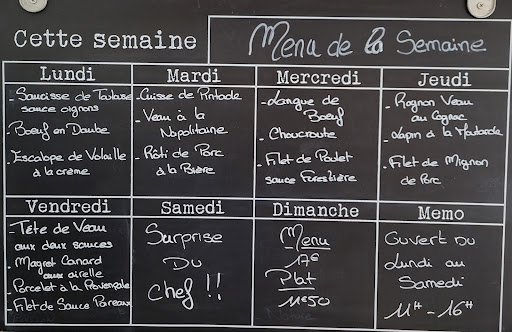 Cette semaine
Menu de la Semaine
Lundi
- Saucisse de Toulouse
sauce oignons
- Boeuf en Daube
- Escalope de Volaille
à la crème
Mardi
- Cuisse de Pintade
- Veau à la
Napolitaine
- Rôti de Porc
à la Bière
Mercredi
- Langue de
Boeuf
- Choucroute
- Filet de Poulet
sauce Forestière
Jeudi
- Rognon Veau
au Cognac
- Lapin à la Moutarde
- Filet de Mignon
de Porc
Vendredi
- Tête de Veau
aux deux sauces
- Magret Canard
aux airelle
- Porcelet à la Provençale
- Filet de Sauce Poireaux
Samedi
Surprise
Du
Chef !!
Dimanche
Menu
17€
Plat
11€50
Memo
Ouvert Du
Lundi au
Samedi
11H - 16H